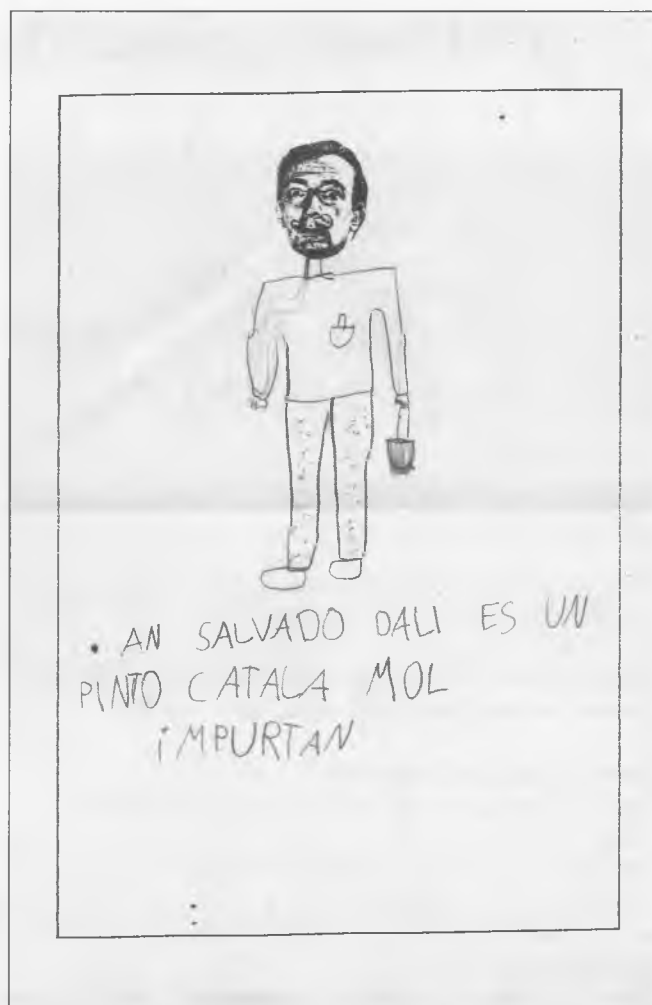 . AN SALVADO DALI ES UN
PINTO CATALA MOL
iMPURTAN